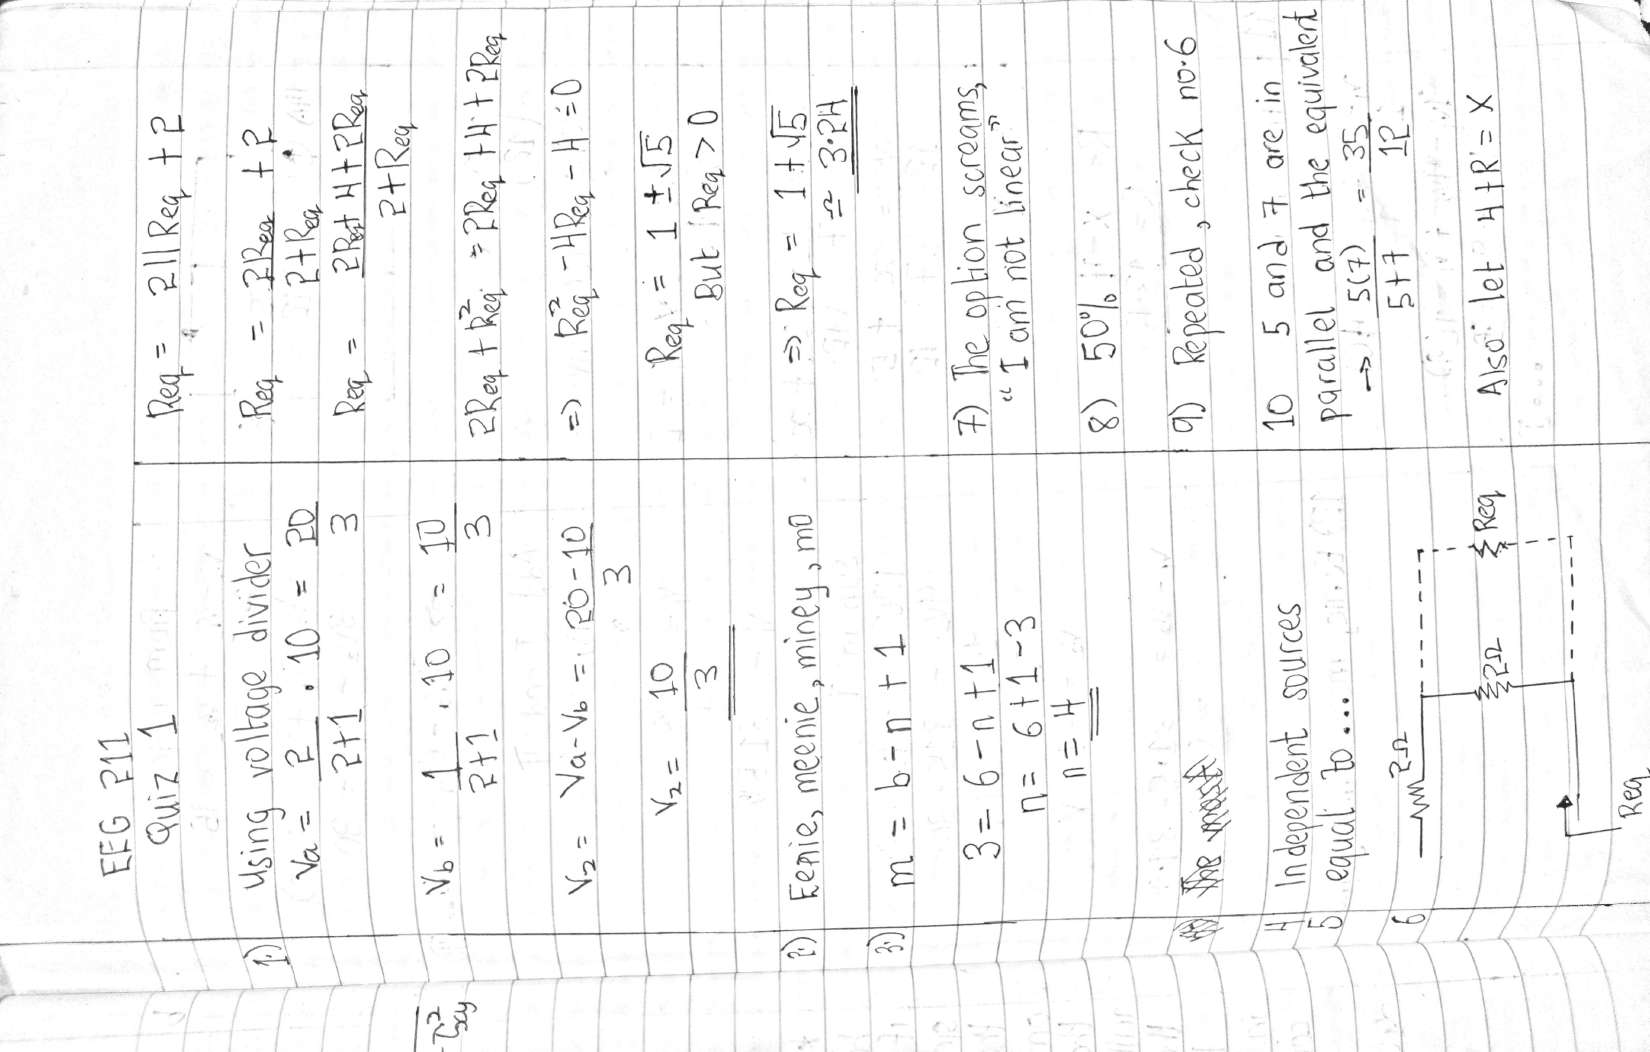 EEG 211
Quiz 1
1.) Using voltage divider
Va = 2/2+1 . 10 = 20/3
Vb = 1/2+1 . 10 = 10/3
V2 = Va-Vb = 20-10/3
V2 = 10/3
2.) Eenie, meenie, miney, mo
3.) m = b-n+1
3 = 6-n+1
n = 6+1-3
n = 4
4 Independent sources
5 equal to ...
6
2Ω
2Ω
Req
Req
Req = 2||Req + 2
Req = 2Req/2+Req + 2
Req = 2Req+4+2Req/2+Req
2Req + Req² = 2Req + 4 + 2Req
=> Req² - 4Req - 4 = 0
Req = 1 ± √5
But Req > 0
=> Req = 1+√5
= 3.24
7) The option screams,
"I am not linear"
8) 50%
9) Repeated, check no.6
10 5 and 7 are in
parallel and the equivalent
→ 5(7)/5+7 = 35/12
Also let 4+R' = X
-τ²xy